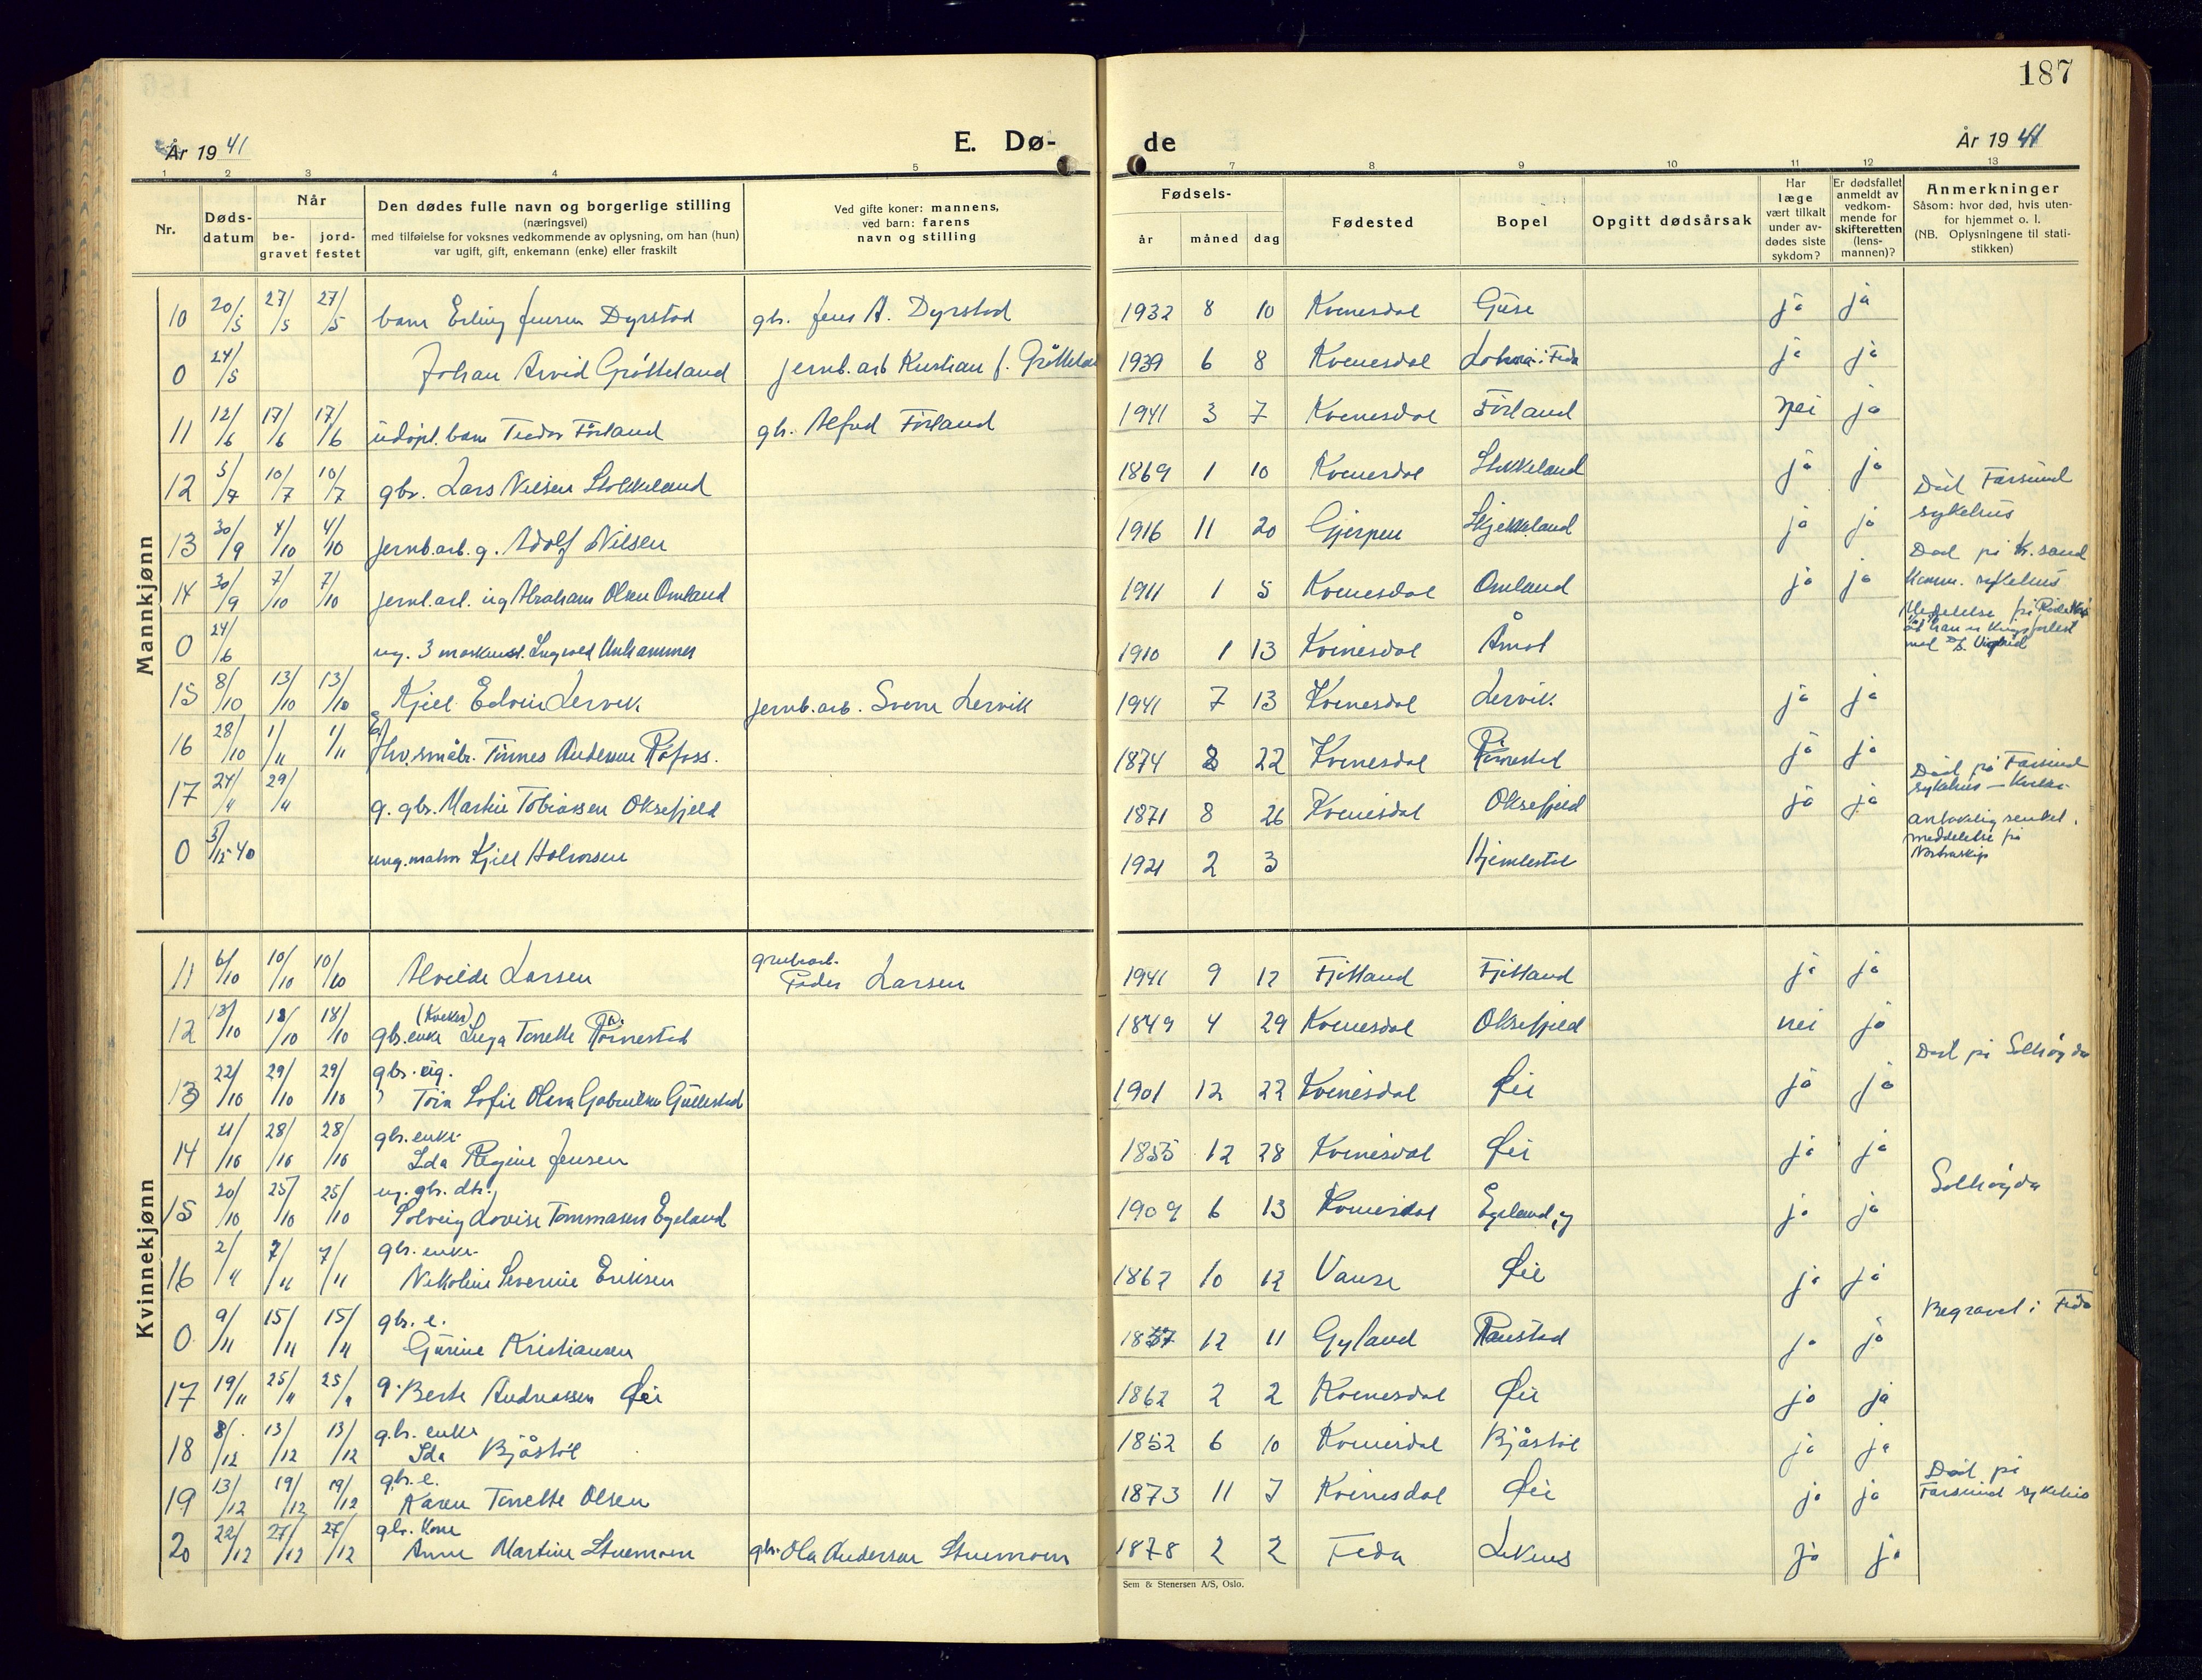 187
År 1941
E. Dø-
de
År 1941
1 2 3 4 5 7 8 9 10 11 12 13
Nr.
Døds-
datum
Når
be-
gravet
jord-
festet
Den dødes fulle navn og borgerlige stilling
(næringsvei)
med tilføielse for voksnes vedkommende av oplysning, om han (hun)
var ugift, gift, enkemann (enke) eller fraskilt
Ved gifte koner: mannens,
ved barn: farens
navn og stilling
Fødsels-
år måned dag
Fødested
Bopel
Opgitt dødsårsak
Har
læge
vært tilkalt
under av-
dødes siste
sykdom?
Er dødsfallet
anmeldt av
vedkom-
mende for
skifteretten
(lens-
mannen)?
Anmerkninger
Såsom: hvor død, hvis uten-
for hjemmet o. l.
(NB. Oplysningene til stati-
stikken)
Mannkjønn
10 20/5 27/5 27/5 barn Erling Jensen Dyrstad gbr. Jens A. Dyrstad 1932 8 10 Kvinesdal Guse ja ja
0 24/5 Johan Arvid Grøtteland jernb. arb Kristian J. Grøtteland 1939 6 8 Kvinesdal i Feda ja ja
11 12/6 17/6 17/6 udøpt. barn Førland gbr. Alfred Førland 1941 3 7 Kvinesdal Førland nei ja
12 5/7 10/7 10/7 gbr. Lars Nilsen Stokkeland 1869 1 10 Kvinesdal Stokkeland ja ja Død Farsund
sykehus
13 30/9 4/10 4/10 jernb. arb. g. Adolf Nilsen 1916 11 20 Gjerpen Skjekkeland ja ja Død på Kr.sand
komm. sykehus
14 30/9 7/10 7/10 jernb. arb. ug Abraham Olsen Omland 1911 1 5 Kvinesdal Omland ja ja
0 24/6 ug. 3 maskinist. Ingvald Unhammer 1910 1 13 Kvinesdal Åmot Meddelelse fra
at han er krigsforlist
med D/S
15 8/10 13/10 13/10 Kjell Edvin Lervik jernb. arb. Sverre Lervik 1941 7 13 Kvinesdal Lervik. ja ja
16 28/10 1/11 1/11 fhv. småbr. Tønnes Andersen Råfoss. 1874 8 22 Kvinesdal Rørnestad ja ja
17 24/11 29/11 g. gbr. Martin Tobiassen Oksefjeld 1871 8 26 Kvinesdal Oksefjeld ja ja Død på Farsund
sykehus
0 5/12 40 ung. matros Kjell Halvorsen 1921 2 3 Hjemlestøl antakelig senket.
meddelelse fra
Nortraship
Kvinnekjønn
11 6/10 10/10 10/10 Alvilde Larsen grubearb.
Peder Larsen 1941 9 12 Fjotland Fjotland ja ja
12 13/10 18/10 18/10 (Kveker)
gbr. enke Inga Tonette Rørnestad 1849 4 29 Kvinesdal Oksefjeld nei ja
13 22/10 29/10 29/10 gbr. ug.
Tora Sofie Olava Gabrielsen Gullestad 1901 12 22 Kvinesdal Øie ja ja Død på Solhøgda
14 21/10 28/10 28/10 gbr. enke
Ida Regine Jensen 1855 12 28 Kvinesdal Øie ja ja
15 20/10 25/10 25/10 ug. gbr. dtr.
Solveig Lovise Tommasen Egeland 1909 6 13 Kvinesdal Egeland, ja ja Solhøgda
16 2/11 7/11 7/11 gbr. enke
Nikoline Severine Eriksen 1862 10 12 Vanse Øie ja ja
0 9/11 15/11 15/11 gbr. e.
Gurine Kristiansen 1857 12 11 Gyland Raustad ja ja Begravet i Feda
17 19/11 25/11 25/11 g. Berte Andreassen Øie 1862 2 2 Kvinesdal Øie ja ja
18 8/12 13/12 13/12 gbr. enke
Ida Bjåstøl 1852 6 10 Kvinesdal Bjåstøl ja ja
19 13/12 19/12 19/12 gbr. e.
Karen Tonette Olsen 1873 11 7 Kvinesdal Øie ja ja Død på
Farsund sykehus
20 22/12 27/12 27/12 gbr. kone
Anne Martine Stuemoen gbr. Ola Andersen Stuemoen 1878 2 2 Feda Lekus ja ja
Sem & Stenersen A/S, Oslo.